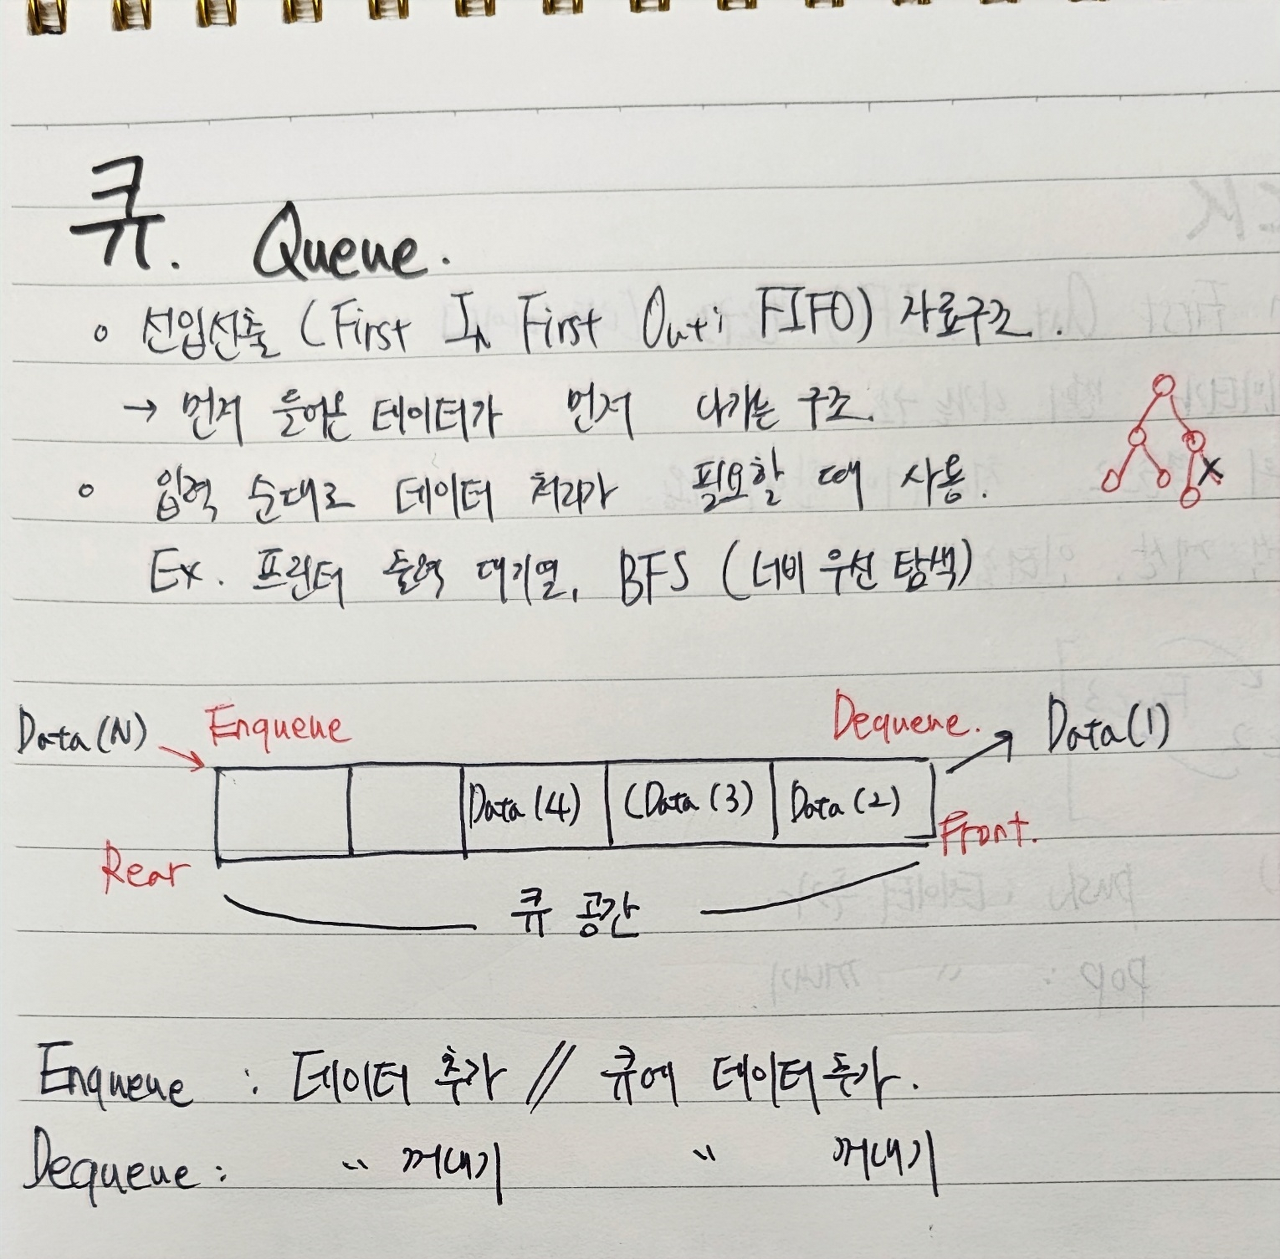 큐. Queue.
o 선입선출 (First In First Out; FIFO) 자료구조.
→ 먼저 들어온 데이터가 먼저 나가는 구조.
o 입력 순대로 데이터 처리가 필요할 때 사용.
Ex. 프린터 출력 대기열, BFS (너비 우선 탐색)
Data(N) → Enqueue Dequeue. → Data(1)
Data(4) (Data(3) Data(2)
Rear Front.
큐 공간
Enqueue : 데이터 추가 // 큐에 데이터 추가.
Dequeue : 〃 꺼내기 〃 꺼내기